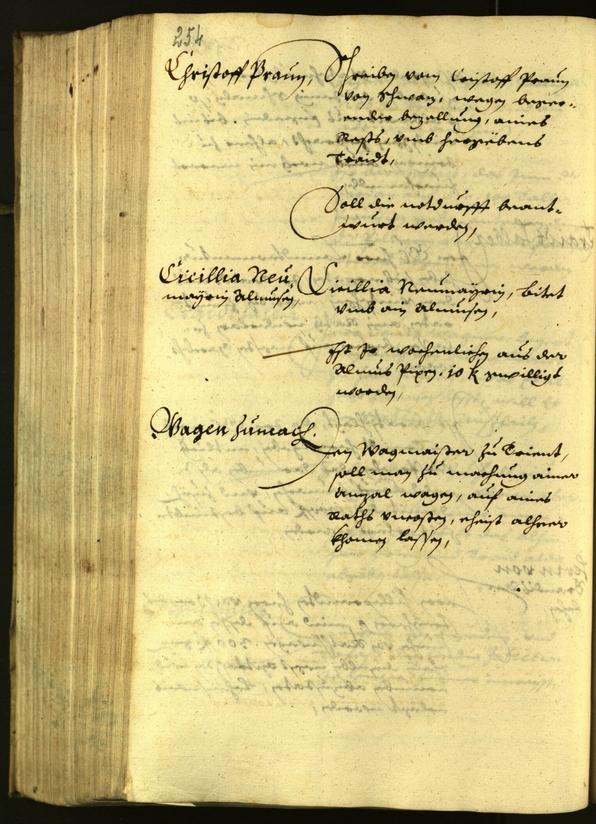 254
Christoff Praun,
Schreiben vom Cristoff Praun
von Schwaz, wegen beger-
ender bezallung, aines
Rests, vmb hergebens
Traidt,
Soll die notdurfft beant-
wurt werden,
Cicillia Neu,
mayrin Almusen,
Cicillia Neumayrin, bitet
vmb ain Almusen,
Ist Jr wochenlichen aus der
Almus Pixen . 10 K bewilligt
worden,
Wagen zumach.
Den Wagmaister zu Trient,
soll man zu machung ainer
Anzal wagen, auf aines
Raths vncosten, eheist alheer
khomen lassen,